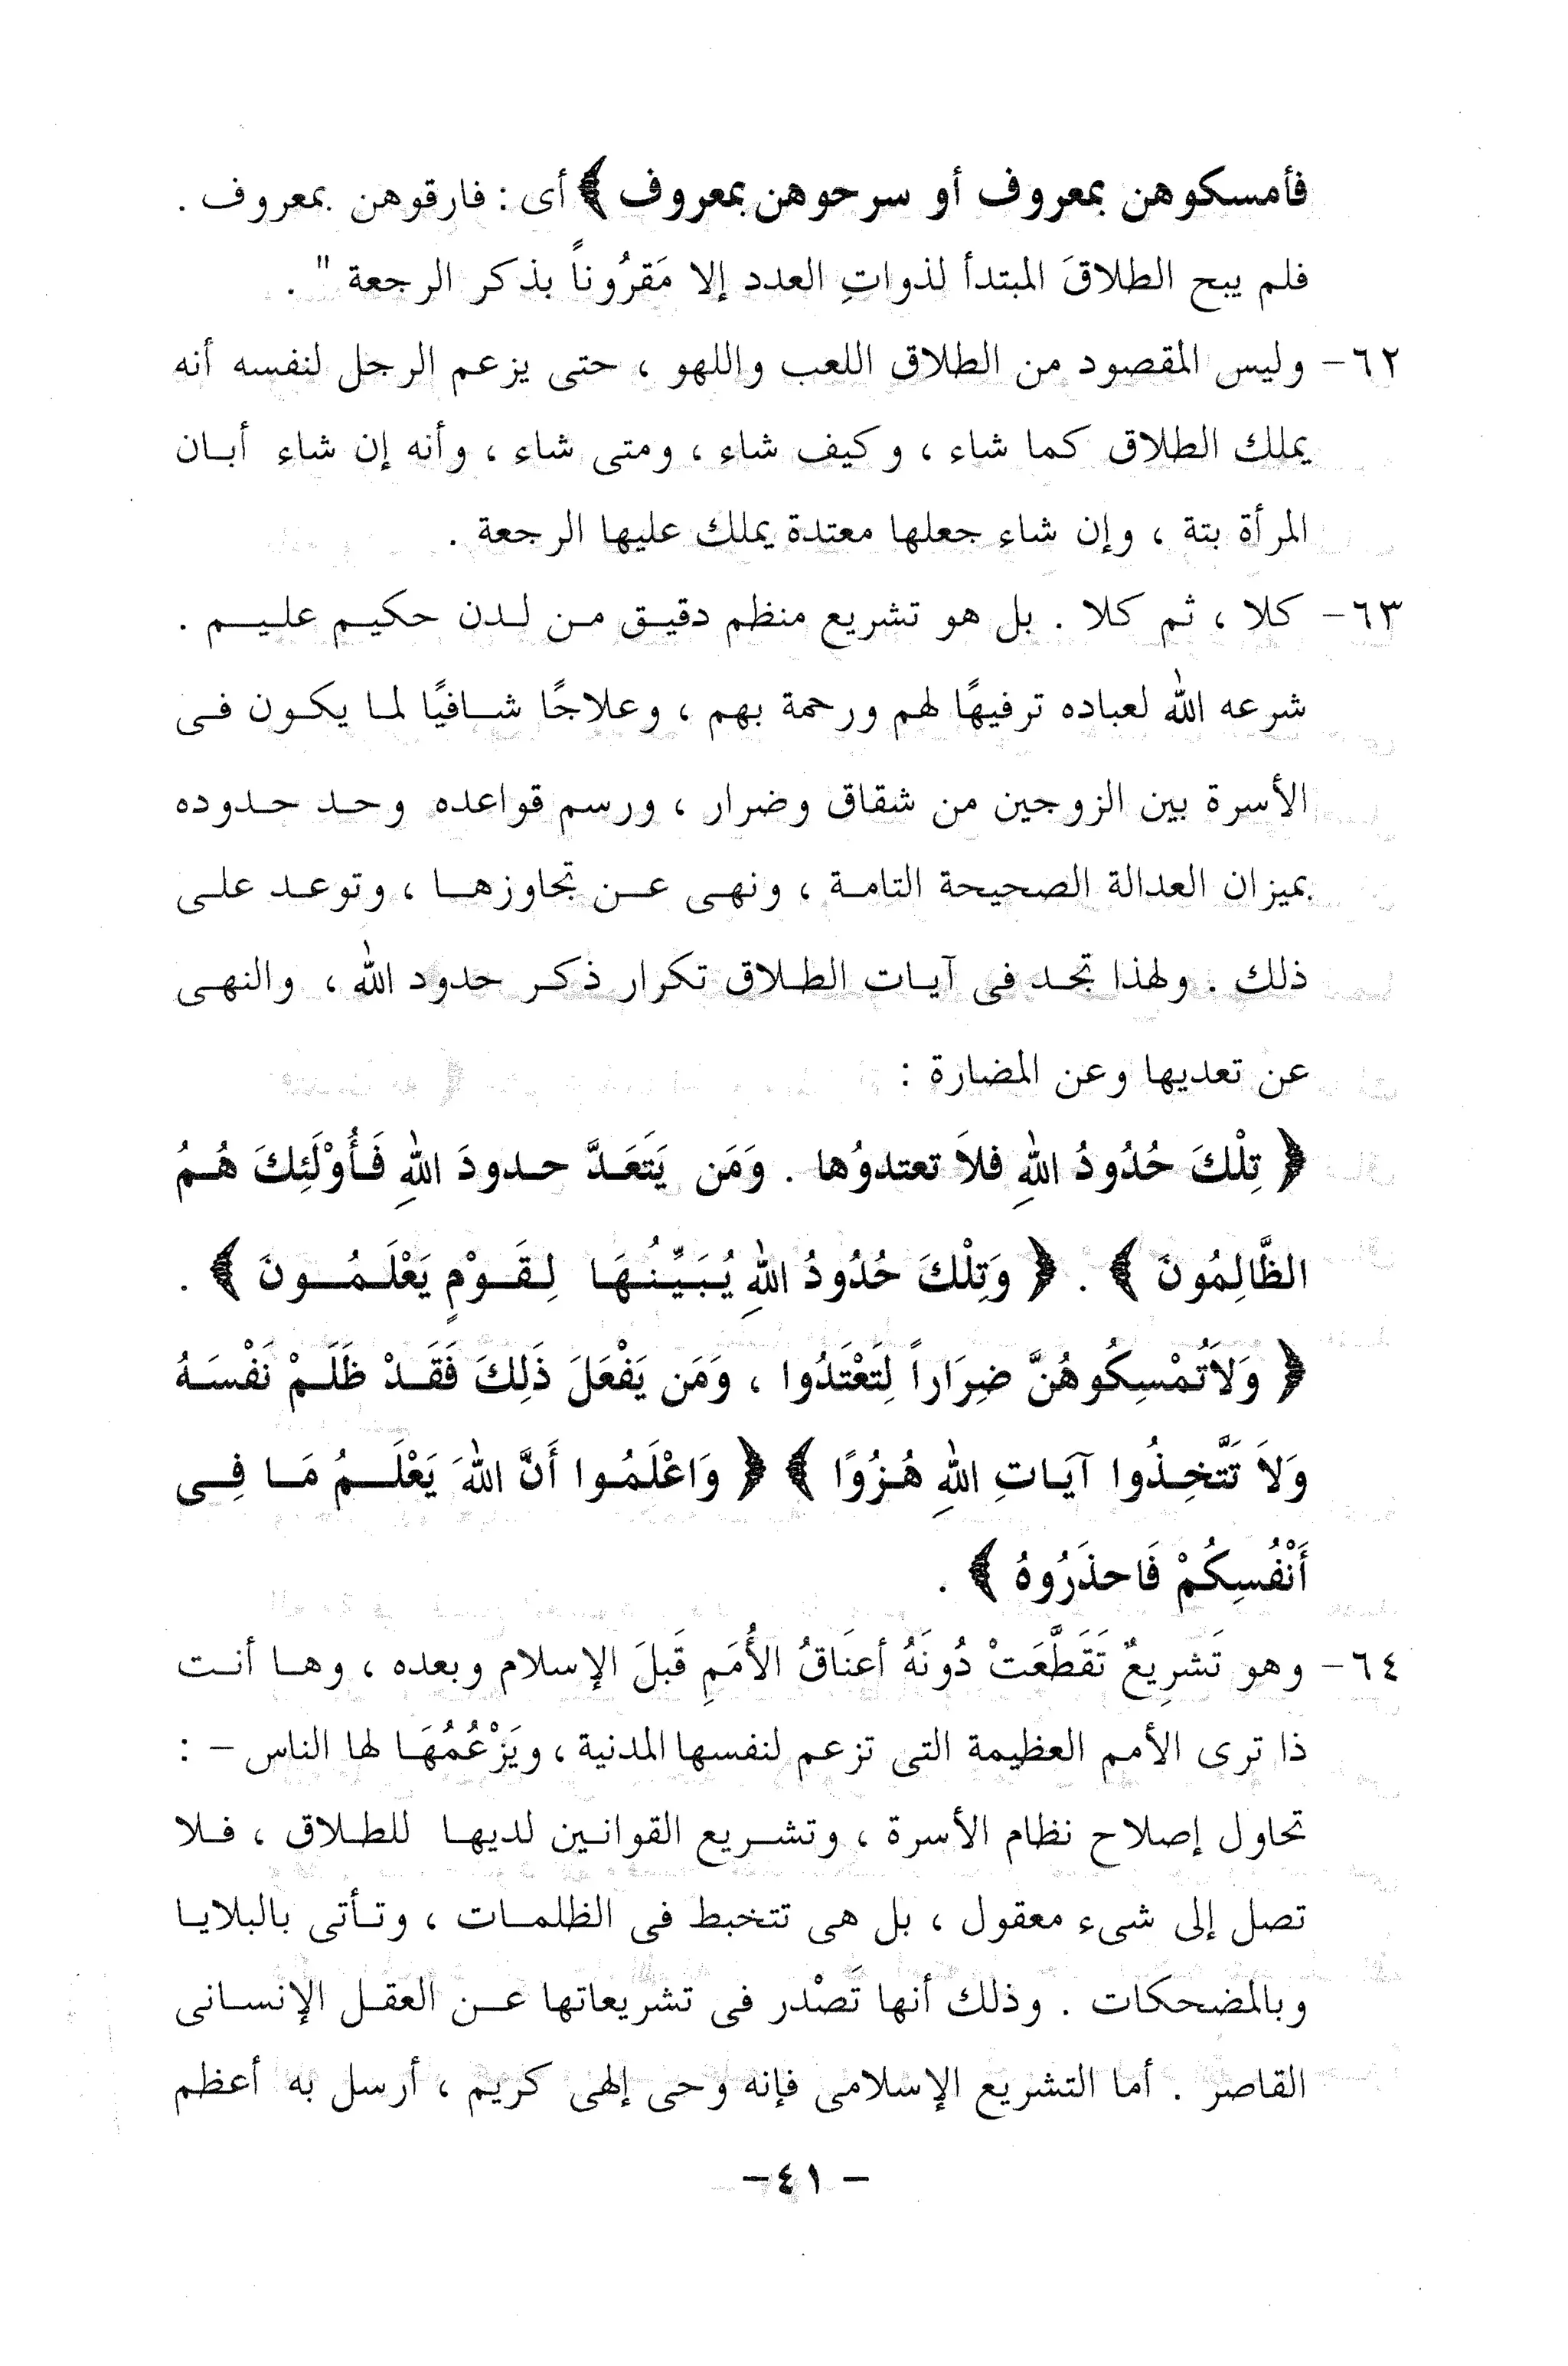 فأمسكوهن بمعروف أو سرحوهن بمعروف ﴾ أى : فارقوهن بمعروف .
فلم يبح الطلاقَ المبتدأ لذواتِ العدد إلا مَقرُوناً بذكر الرجعة " .
٦٢- وليس المقصود من الطلاق اللعب واللهو ، حتى يزعم الرجل لنفسه أنه
يملك الطلاق كما شاء ، وكيف شاء ، ومتى شاء ، وأنه إن شاء أبان
المرأة بتة ، وإن شاء جعلها معتدة يملك عليها الرجعة .
٦٣- كلا ، ثم كلا . بل هو تشريع منظم دقيق من لدن حكيم عليم .
شرعه الله لعباده ترفيهًا لهم ورحمة بهم ، وعلاجًا شافيًا لما يكون فى
الأسرة بين الزوجين من شقاق وضرار ، ورسم قواعده وحد حدوده
بميزان العدالة الصحيحة التامة ، ونهى عن تجاوزها ، وتوعد على
ذلك . ولهذا تجد فى آيات الطلاق تكرار ذكر حدود الله ، والنهى
عن تعديها وعن المضارة :
﴿ تِلْكَ حُدُودُ اللهِ فلاَ تعتدوُها . وَمَن يَتَعَدَّ حدودَ اللهِ فَأُوْلَئِكَ هُمُ
الظَّالِمُونَ ﴾ . ﴿ وَتِلْكَ حُدُودُ اللهِ يُبَيِّنُهَا لِقَوْمٍ يَعْلَمُونَ ﴾ .
﴿ وَلاَتُمْسِكُوهُنَّ ضِرَاراً لِتَعْتَدُوا ، وَمَن يَفْعَلَ ذَلِكَ فَقَدْ ظَلَمْ نَفْسَهُ
وَلاَ تَتَّخِذُوا آيَاتِ اللهِ هُزُوًا ﴾ ﴿ وَاعْلَمُوا أَنَّ اللهَ يَعْلَمُ مَا فِى
أَنْفُسِكُمْ فَاحذَرُوهُ ﴾ .
٦٤- وهو تَشرِيعٌ تَقَطَّعَتْ دُونَهُ أعنَاقُ الأُمَمِ قَبلَ الإسلام وبعده ، وها أنت
ذا ترى الأمم العظيمة التى تزعم لنفسها المدنية ، ويَزْعُمُهَا لها الناس - :
تحاول إصلاح نظام الأسرة ، وتشريع القوانين لديها للطلاق ، فلا
تصل إلى شىء معقول ، بل هى تتخبط فى الظلمات ، وتأتى بالبلايا
وبالمضحكات . وذلك أنها تَصْدر فى تشريعاتها عن العقل الإنسانى
القاصر . أما التشريع الإسلامى فإنه وحى إلهى كريم ، أرسل به أعظم
- ٤١ -